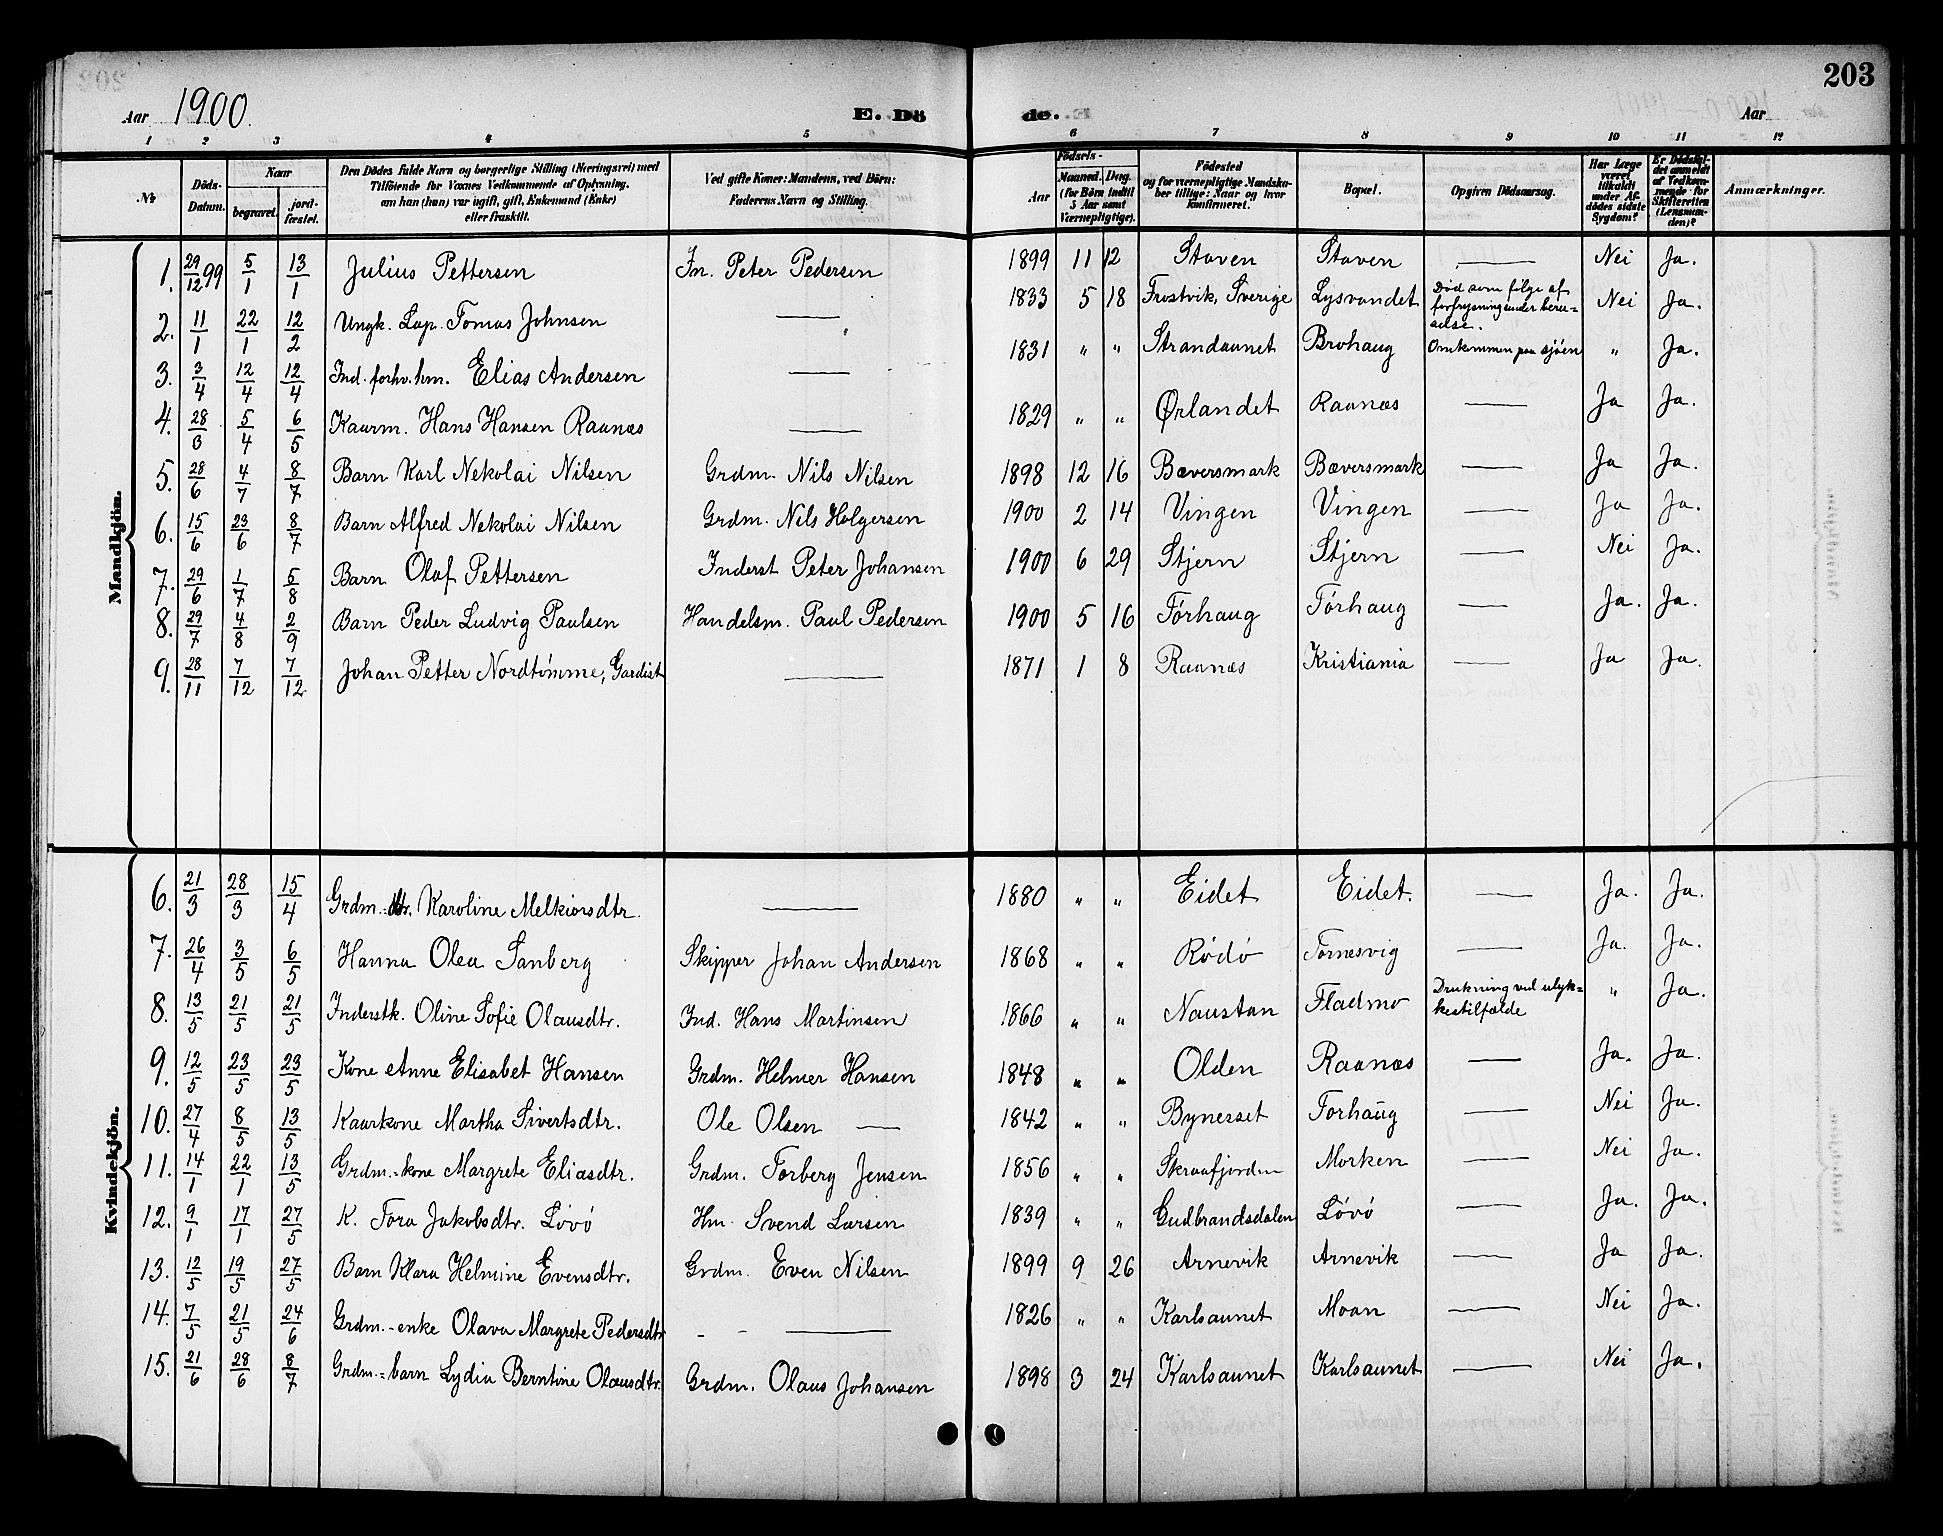 203
Aar 1900. E. Dö de. Aar
1 2 3 4 5 6 7 8 9 10 11 12
№ Döds-Datum. Naar begravet. jord-fæstet. Den Dödes fulde Navn og borgerlige Stilling (Næringsvei) med Tilföiende for Voxnes Vedkommende af Oplysning, om han (hun) var ugift, gift, Enkemand (Enke) eller fraskilt. Ved gifte Koner: Mandens, ved Börn: Faderens Navn og Stilling. Födsels- Aar Maaned. Dag. (for Börn indtil 5 Aar samt Værnepligtige). Födested og for værnepligtige Mandska-ber tillige: Naar og hvor konfirmeret. Bopæl. Opgiven Dödsaarsag. Har Læge været tilkaldt under Af-dödes sidste Sygdom? Er Dödsfal-det anmeldt af Vedkom-mende for Skifteretten (Lensman-den)? Anmærkninger.
Mandkjön.
1. 29/12 99 5/1 13/1 Julius Pettersen In. Peter Pedersen 1899 11 12 Staven Staven — Nei Ja.
2. 11/1 22/1 12/2 Ungk. Lap. Tomas Johnsen — 1833 5 18 Frostvik, Sverige Lysvandet Död som fölge af forfrysning under beru-selse. Nei Ja.
3. 3/4 12/4 12/4 Ind. forhv. hm. Elias Andersen — 1831 " " Strandaunet Brohaug Omkommen paa sjöen " Ja.
4. 28/3 5/4 6/5 Kaarm. Hans Hansen Raanæs — 1829 " " Ørlandet Raanæs — Ja Ja.
5. 28/6 4/7 8/7 Barn Karl Nekolai Nilsen Grdm. Nils Nilsen 1898 12 16 Bæversmark Bæversmark — Ja Ja.
6. 15/6 23/6 8/7 Barn Alfred Nekolai Nilsen Grdm. Nils Holgersen 1900 2 14 Vingen Vingen — Ja Ja.
7. 29/6 1/7 5/8 Barn Olaf Pettersen Inderst Peter Johansen 1900 6 29 Stjern Stjern — Nei Ja.
8. 29/7 4/8 2/9 Barn Peder Ludvig Paulsen Handelsm. Paul Pedersen 1900 5 16 Tórhaug Tórhaug — Ja. Ja.
9. 28/11 7/12 7/12 Johan Petter Nordtömme, Gardist — 1871 1 8 Raanæs Kristiania — Ja Ja.
Kvindekjön.
6. 21/3 28/3 15/4 Grdm.-dtr. Karoline Melkiorsdtr. — 1880 " " Eidet Eidet. — Ja. Ja.
7. 26/4 3/5 6/5 Hanna Olea Sanberg Skipper Johan Andersen 1868 " " Rödö Tornesvig — Ja. Ja.
8. 13/5 21/5 21/5 Inderstk. Oline Sofie Olausdtr. Ind. Hans Martinsen 1866 " " Naustan Fladmo Drukning ved ulyk-kestilfælde " Ja.
9. 12/5 23/5 23/5 Kone Anne Elisabet Hansen Grdm. Helmer Hansen 1848 " " Olden Raanæs — Ja. Ja.
10. 27/4 8/5 13/5 Kaarkone Martha Sivertsdtr. Ole Olsen — 1842 " " Bynesset Torhaug — Nei Ja.
11. 14/1 22/1 13/5 Grdm.-kone Margrete Eliasdtr. Grdm. Torberg Jensen 1856 " " Skraafjorden Morken — Nei Ja.
12. 9/1 17/1 27/5 K. Tora Jakobsdtr. Lövö Hm. Svend Larsen 1839 " " Gudbrandsdalen Lövö — Ja. Ja.
13. 12/5 19/5 27/5 Barn Klara Helmine Evensdtr. Grdm. Even Nilsen 1899 9 26 Arnevik Arnevik — Ja Ja.
14. 7/5 21/5 24/6 Grdm.-enke Olava Margrete Pedersdtr - - — 1826 " " Karlsaunet Moan — Nei Ja.
15. 21/6 28/6 8/7 Grdm.-barn Lydia Berntine Olausdtr. Grdm. Olaus Johansen 1898 3 24 Karlsaunet Karlsaunet — Nei Ja.